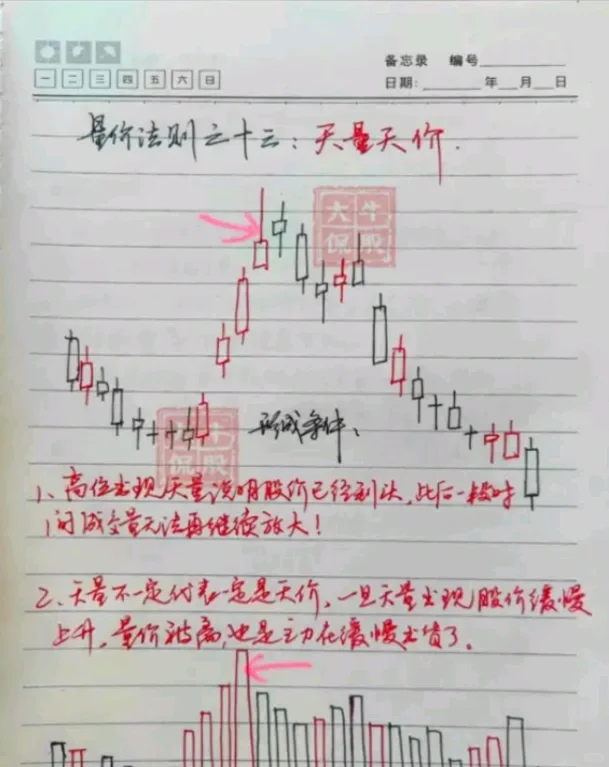 备忘录 编号
一 二 三 四 五 六 日
日期: 年 月 日
量价法则之十三：天量天价.
大牛
侃股
大牛
侃股
形成条件、
1、高位出现天量说明股价已经到头，此后一段时
间成交量无法再继续放大！
2、天量不一定代表一定是天价，一旦天量出现股价缓慢
上升，量价背离，也是主力在缓慢出货了。